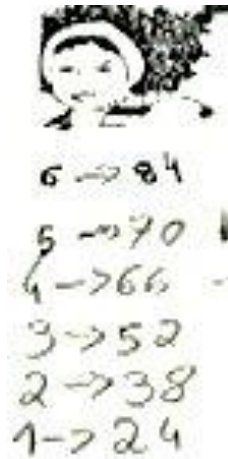 6 → 84
5 → 70
4 → 66
3 → 52
2 → 38
1 → 24